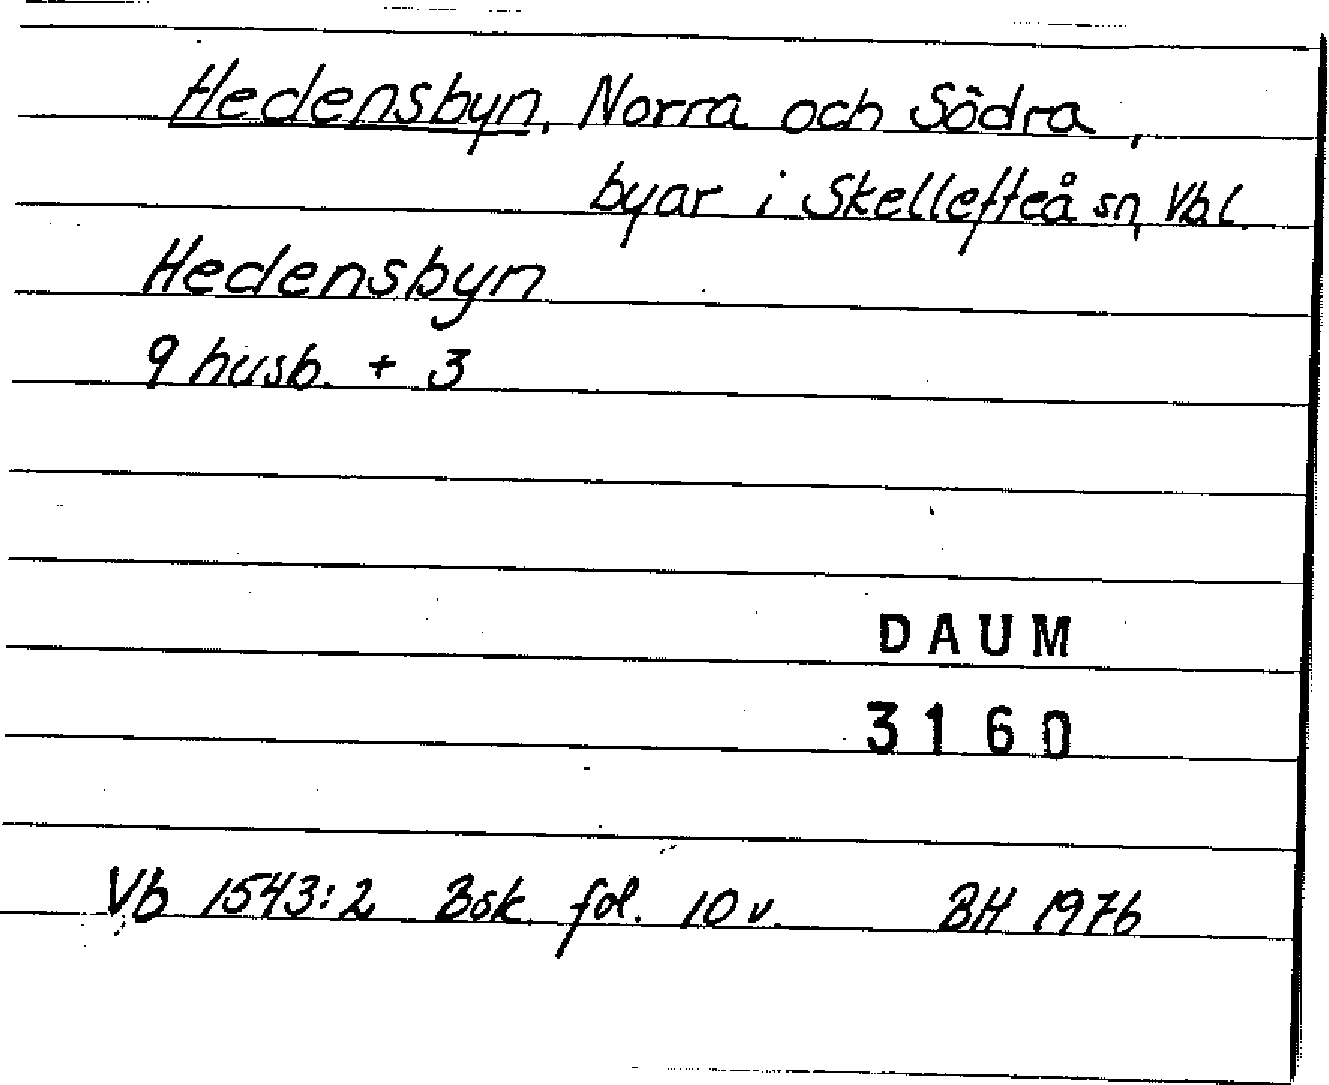 Hedensbyn, Norra och Södra,
byar i Skellefteå sn, Vbl.
Hedensbyn
9 husb. + 3
DAUM
3160
Vb 1543:2 Bsk fol. 10 v. BH 1976